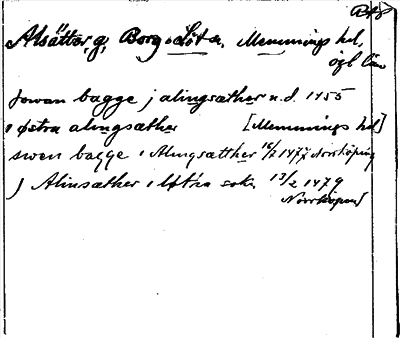 B48
Alsätter, g, Borg o Löt sn, Memmings hd,
ögl län
jowan bagge j alingsæther n.d. 1455
i østra alingsæther [Memmings hd]
swen bagge i Alingsætther 16/2 1477 Norrköping
j Alinsæther i løtra sokn 13/2 1479
Norrköping